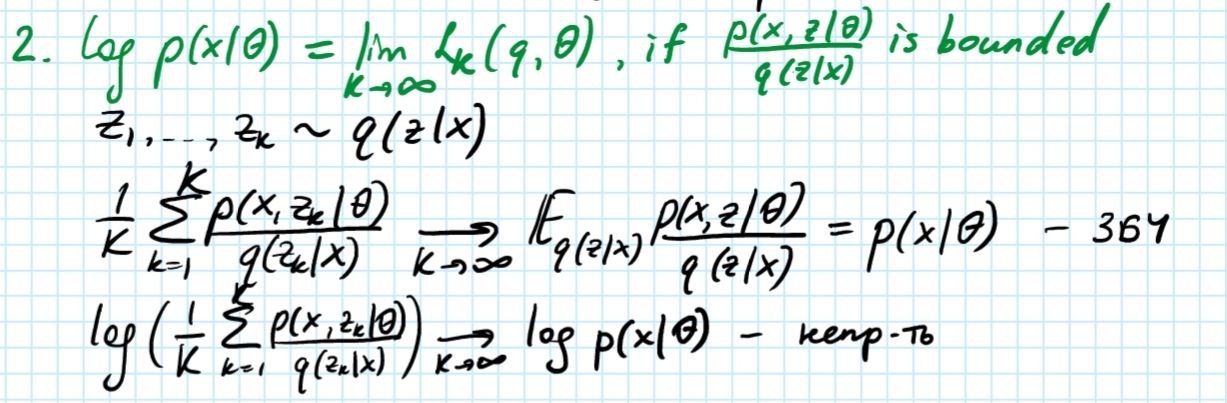 2. log p(x|θ) = lim_{K→∞} L_K(q, θ), if p(x, z|θ) / q(z|x) is bounded
z_1, ..., z_K ~ q(z|x)
1/K Σ_{k=1}^{K} p(x, z_k|θ) / q(z_k|x) →_{K→∞} 𝔼_{q(z|x)} p(x, z|θ) / q(z|x) = p(x|θ) - ЗБЧ
log(1/K Σ_{k=1}^{K} p(x, z_k|θ) / q(z_k|x)) →_{K→∞} log p(x|θ) - непр-ть